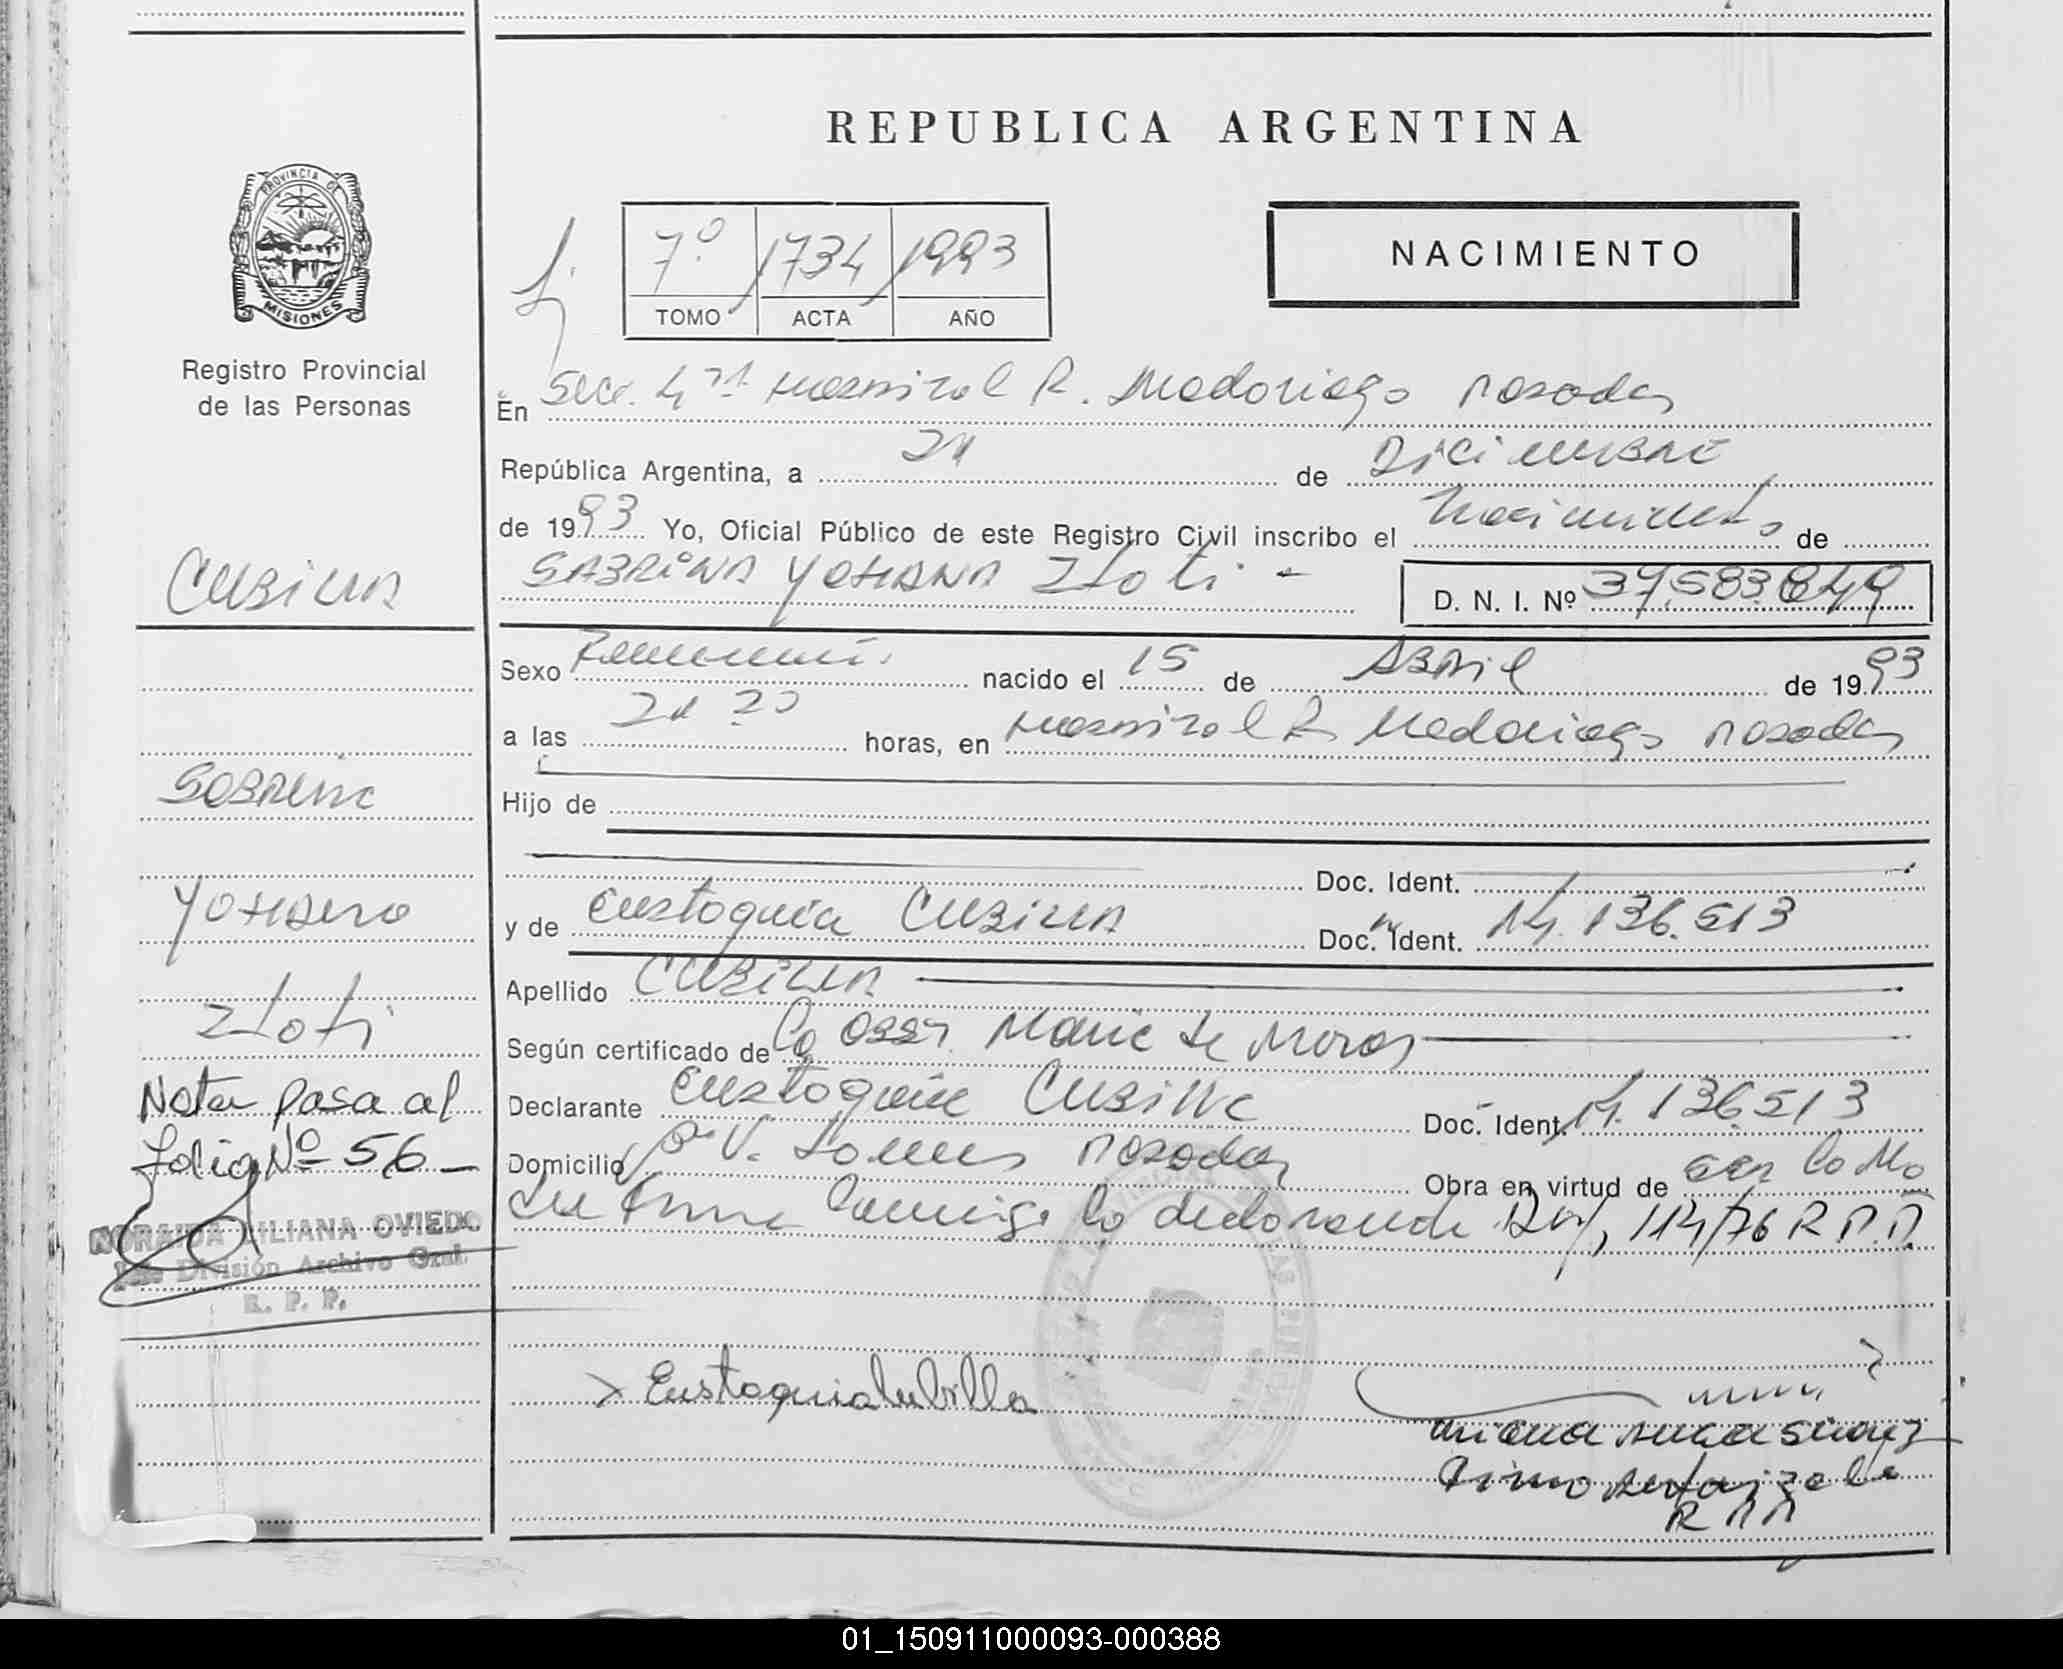 REPUBLICA ARGENTINA
PROVINCIA DE
MISIONES
Registro Provincial
de las Personas
NACIMIENTO
7º 1734 1993
TOMO ACTA AÑO
En Secc. 4ª Hospital R. Madariaga Posadas
República Argentina, a 21 de Diciembre
de 1993 Yo, Oficial Público de este Registro Civil inscribo el Nacimiento de
SABRINA YOHANA Itati -
D. N. I. Nº 37.583.849
Sexo Femenino nacido el 15 de Abril de 1993
a las 21 20 horas, en Hospital R Madariaga Posadas
Hijo de
Doc. Ident.
y de Eustaquia CUBILLA Doc. Ident. 14.136.513
Apellido CUBILLA
Según certificado de la Obst. Maria de Moras
Declarante Eustaquia Cubilla Doc. Ident. 14.136.513
Domicilio Posadas Obra en virtud de ser la Ma
dre firma conmigo la declarante 114/76 R P P.
Eustaquia Cubilla
R P P
CUBILLA
Sabrina
Yohana
Itati
Nota pasa al
folio Nº 56 -
NORAIDA LILIANA OVIEDO
Jefe División Archivo Gral.
R. P. P.
01_150911000093-000388